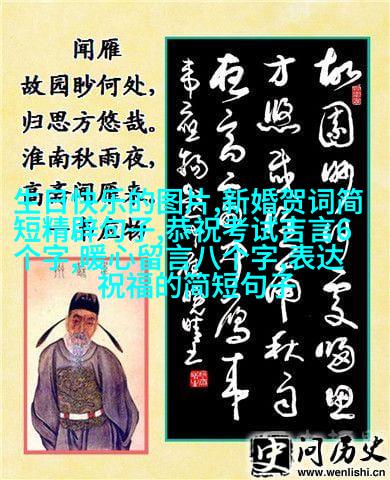 闻雁
故园眇何处,
归思方悠哉。
淮南秋雨夜,
高斋闻雁来。
应物
生日快乐的图片,新婚贺词简
短精辟句子,恭祝考试吉言6
个字,暖心留言八个字,表达
祝福的简短句子
故園眇何處歸思
方悠哉淮南秋雨
夜高齋聞雁來
问历史
www.wenlishi.com